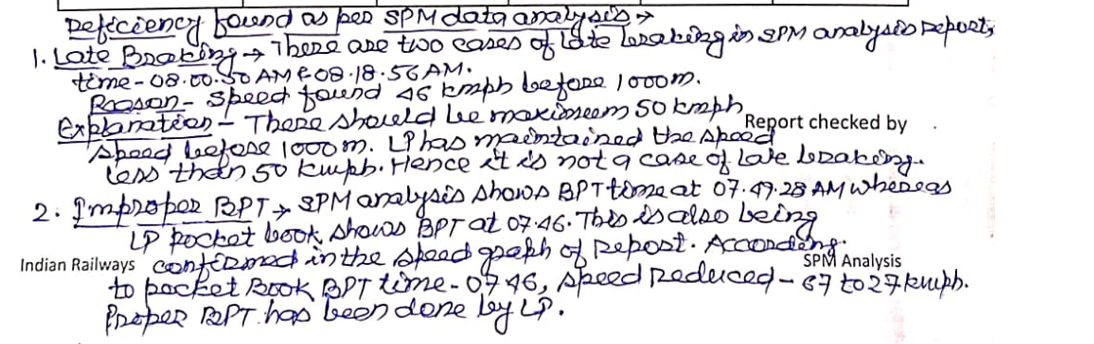 Deficiency found as per SPM data analysis →
1. Late Braking → There are two cases of late braking in SPM analysis report,
time - 08.00.50 AM & 08.18.56 AM.
Reason - Speed found 46 kmph before 1000m.
Explanation - There should be maximum 50 kmph
Report checked by
speed before 1000m. LP has maintained the speed
less than 50 kmph. Hence it is not a case of late braking.
2. Improper BPT → SPM analysis shows BPT time at 07.49.28 AM whereas
LP pocket book shows BPT at 07.46. This is also being
Indian Railways confirmed in the speed graph of report. According
SPM Analysis
to pocket Book BPT time - 0746, speed reduced - 67 to 27 kmph.
Proper BPT has been done by LP.